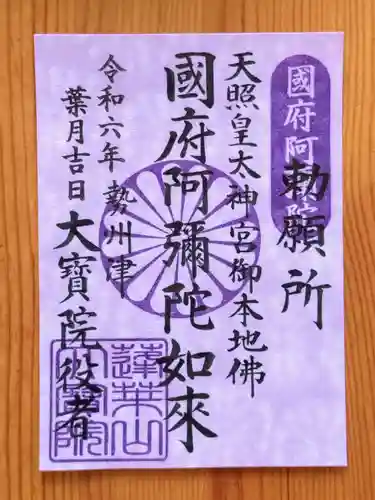 國府阿弥陀
勅願所
天照皇太神宮御本地佛
國府阿彌陀如來
令和六年
葉月吉日
勢州津
大寶院役者
蓮華山
大寶院